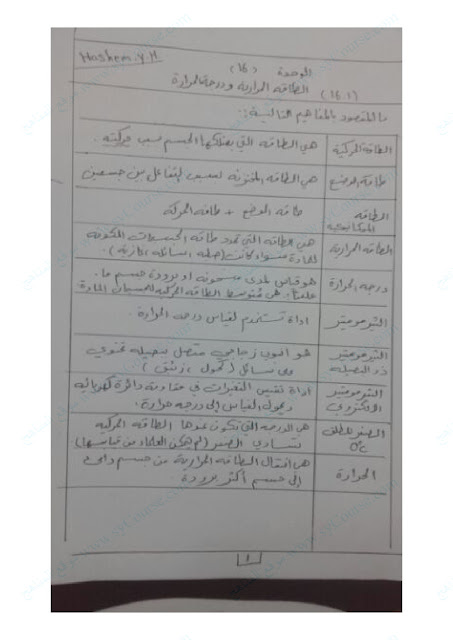 Hashem.y.H
الوحدة (16)
(16.1) الطاقه الحراريه ودرجة الحرارة
ما المقصود بالمفاهيم التالية :-
الطاقه الحركية
هي الطاقه التي يمتلكها الجسم بسبب حركته.
طاقة الوضع
هي الطاقه المخزونه بسبب التفاعل بين جسمين
الطاقه
الميكانيكيه
طاقه الوضع + طاقه الحركه
الطاقه الحراريه
هي الطاقه التي تحدد طاقه الجسيمات المكونه
للمادة سواء كانت (صلبه، سائله، غازيه).
درجه الحرارة
هو قياس لمدى سخونه او برودة جسم ما.
علمياً: هي متوسط الطاقه الحركيه لجسيمات المادة
الثيرمومتير
اداة تستخدم لقياس درجه الحرارة.
الثيرمومتير
ذو البصيله
هو انبوب زجاجي متصل ببصيله تحتوي
على سائل (كحول، زئبق)
الثيرمومتير
الالكتروني
اداة تقيس التغيرات في مقاومة دائرة كهربائيه
ويحول القياس إلى درجه حرارة.
الصفر المطلق
0°c
هي الدرجه التي تكون عندها الطاقه الحركيه
تساوي الصفر (لم يتمكن العلماء من قياسها)
الحرارة
هي انتقال الطاقه الحرارية من جسم دافئ
إلى جسم أكثر برودة.
1